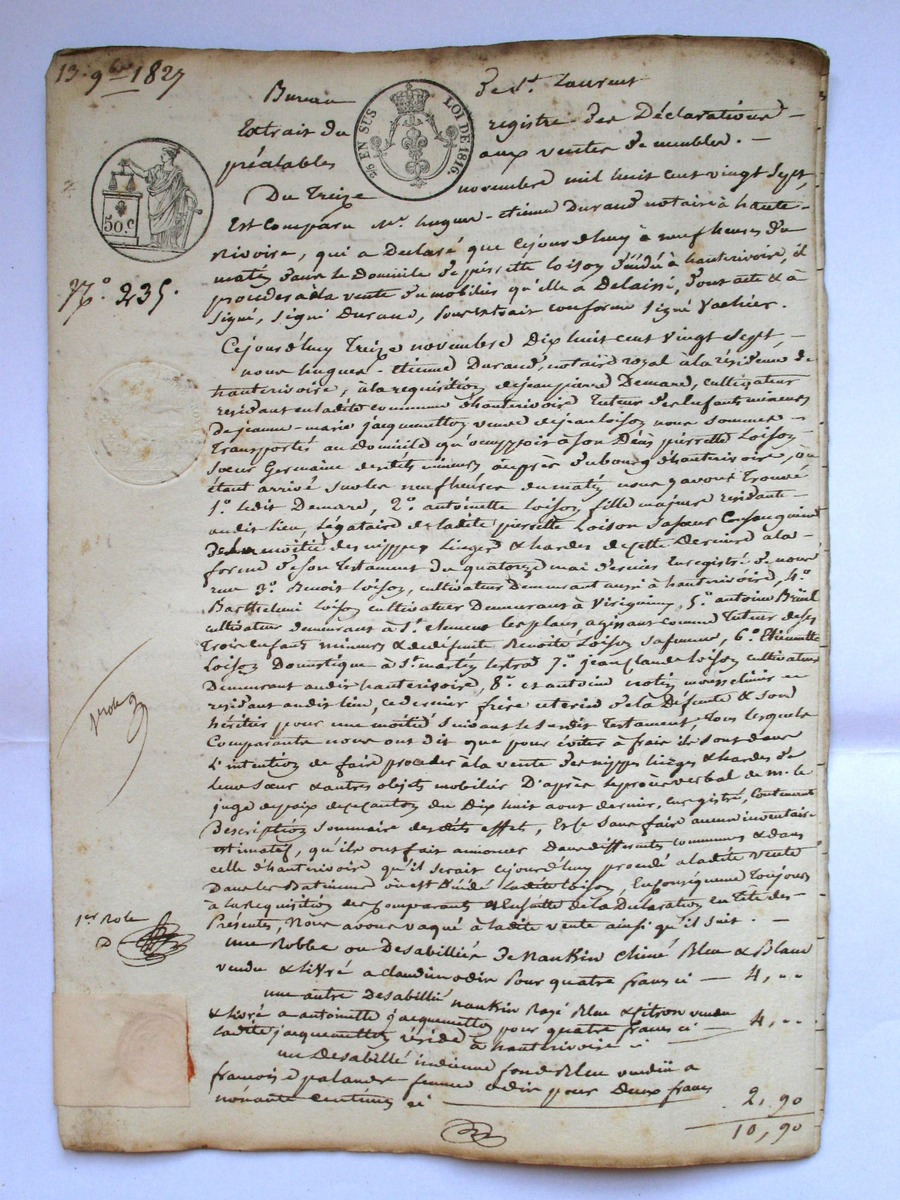 13. 9bre 1827
Bureau de St Laurent
2/5 EN SUS LOI DE 1816.
Extrait du registre des Déclarations
préalables aux ventes de meubles.
50.C
Du Treize novembre mil huit cent vingt sept,
Est Comparu Me hugues-etienne Durand notaire à haute-
Rivoire, qui a Déclaré que Cejourd'huy à neuf heures du
matin dans le Domicile de pierrette loison Décédé à hauterivoire, il
procédera à la vente du mobilier qu'elle à Délaissé, Dont acte & à
Signé, Signé Durand, pour Extrait conforme Signé Vachier.
No 235.
Cejourd'huy Treize novembre Dix huit cent vingt Sept,
nous hugues-etienne Durand, notaire royal à la résidence de
hauterivoire, à la requisition de jean pierre Demare, cultivateur
résidant en ladite commune d'hauterivoire Tuteur des Enfants mineurs
De jeanne-marie jacquemetton veuve de jean Loison nous sommes
Transportés au Domicile qu'occuppoit à Son Décès pierrette Loison
Sœur Germaine desdits mineurs auprès du bourg d'hauterivoire, où
étant arrivé sur les neuf heures du matin nous y avons Trouvé
1o ledit Demare, 2o antoinette Loison fille majeure résidante
audit lieu, Légataire de ladite pierrette Loison Sa sœur Consanguine
De la moitié des nippes Linges & hardes de cette Derniere à la
forme de son Testament du quatorze mai dernier Enregistré de nous
reçu 3o Benoit Loison, cultivateur Demeurant aussi à hauterivoire, 4o
Barthelemi Loison cultivateur Demeurant à Virigneux, 5o antoine
cultivateur demeurant à St clement les places agissant comme Tuteur de ses
Trois enfants mineurs & de défunte Benoite Loison sa femme, 6o Etiennette
Loison Domestique à St martin lestra 7o jean Claude Loison cultivateur
Demeurant audit hauterivoire, 8o et antoine mousselinier
résidant audit lieu, ce dernier frère uterin de la Défunte & son
héritier pour une moitié suivant le susdit Testament, Tous lesquels
Comparants nous ont dit que pour éviter à frais ils sont dans
L'intention de faire proceder à la vente des nippes linges & hardes de
leur Sœur & autres objets mobilier D'après le procès verbal de mr le
juge de paix de ce canton du Dix huit aout dernier, Enregistré, Contenant
Description sommaire desdits effets, Et ce sans faire aucun inventaire
estimatif, qu'ils ont fait annoncer Dans différentes communes & dans
celle d'hauterivoire qu'il serait cejourd'huy procédé à ladite vente
Dans les Batiments où est Décédé ladite Loison, En conséquence Toujours
à la requisition des comparants & Ensuitte de la Declaration en Tete des
Présentes, Nous avons vaqué à ladite vente ainsi qu'il suit.
1er Role
D
Une Robbe ou Desabillié de Nankin chiné Bleu & Blanc
vendu & livré a claudine odin pour quatre francs ci — 4, ..
une autre Desabillié nankin Rayé Bleu & Citron vendu
& livré a antoinette jacquemetton pour quatre francs ci — 4, ..
ladite jacquemetton réside à hauterivoire ci
un Desabillé indienne fond Bleu vendu a
francois palandre femme odin pour Deux francs
nonante centimes ci 2,90
10,90